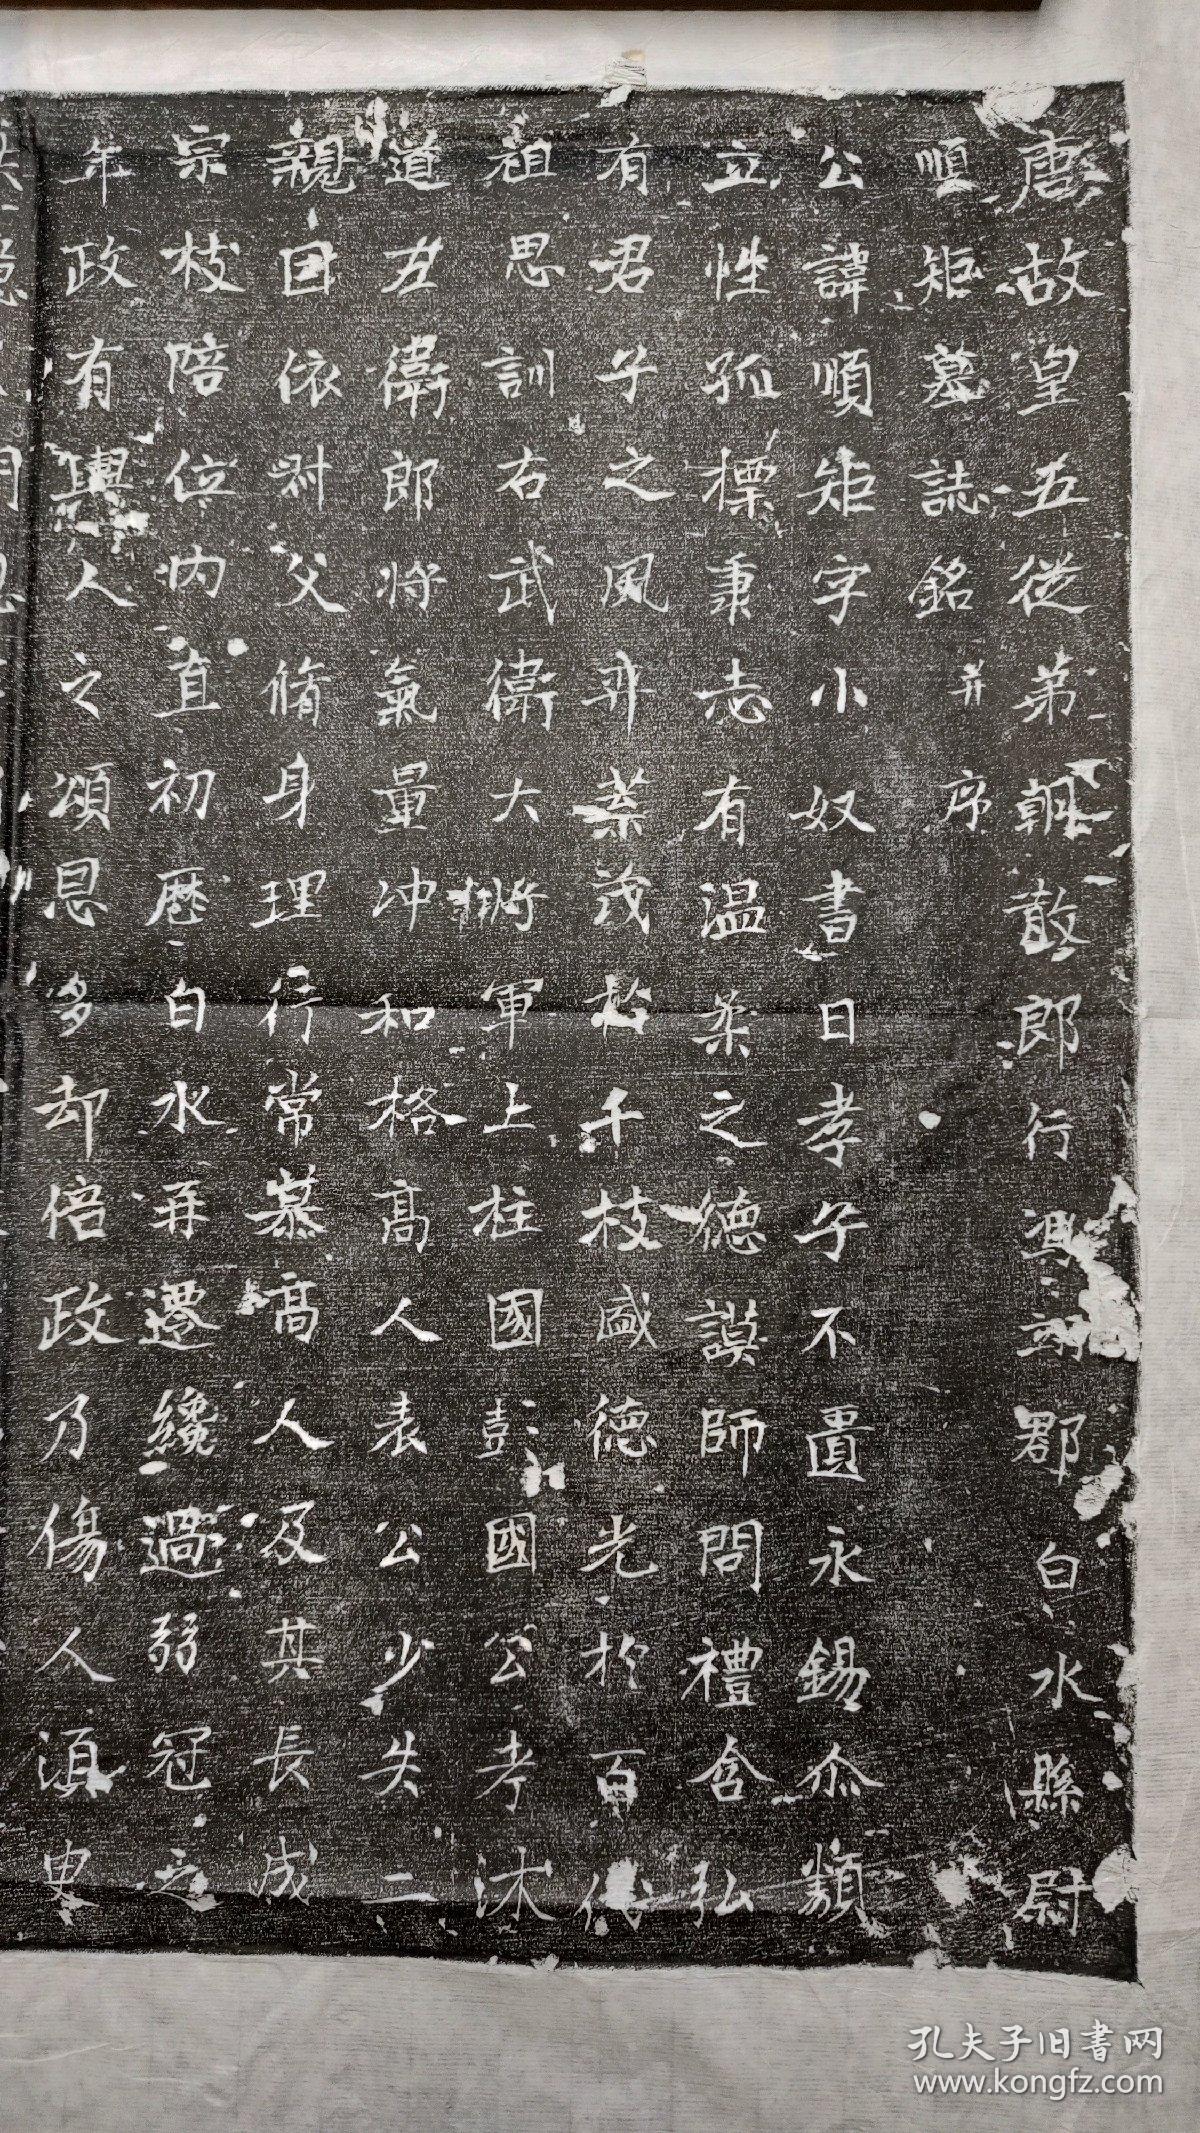 唐故皇五從弟朝散郎行馮翊郡白水縣尉
順矩墓誌銘并序
公諱順矩字小奴書曰孝子不匱永錫尒類
立性孤標秉志有溫柔之德謨師問禮含弘
有君子之風弈葉茂於千枝盛德光於百代
祖思訓右武衛大將軍上柱國彭國公考沐
道左衛郎將氣量沖和格高人表公少失二
親自依叔父脩身理行常慕高人及其長成
宗枝陪位內直初歷白水再遷纔過弱冠之
年政有輿人之頌恩多却倍政乃傷人湏吏
孔夫子旧书网
www.kongfz.com